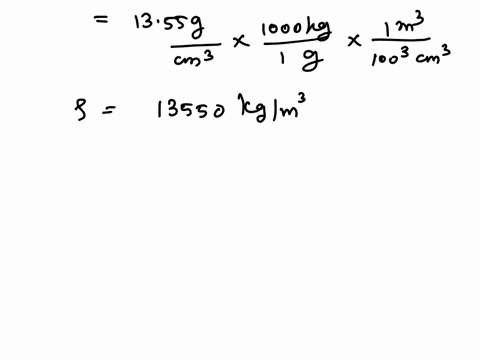 = 13.55g/cm³ × 1000kg/1 g × 1 m³/100³ cm³
ρ = 13550 kg/m³